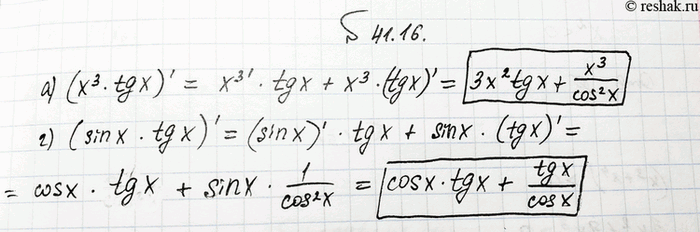 © reshak.ru
§ 41.16.
а) (x³ · tgx)' = x³' · tgx + x³ · (tgx)' = 3x² tgx + x³/cos²x
г) (sinx · tgx)' = (sinx)' · tgx + sinx · (tgx)' =
= cosx · tgx + sinx · 1/cos²x = cosx · tgx + tgx/cosx